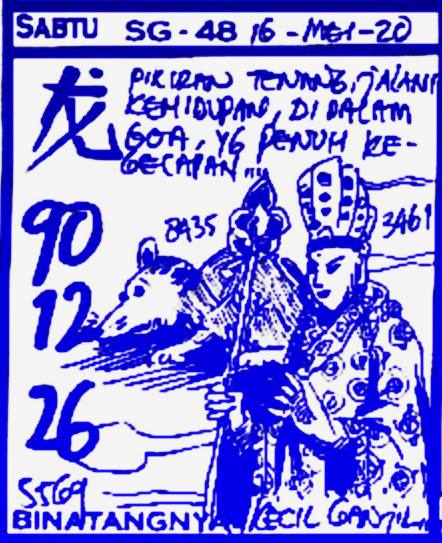 SABTU SG - 48 16 - MEI - 20
龙
PIKIRAN TENANG, JALANI
KEHIDUPAN, DI DALAM
GOA, YG PENUH KE-
GELAPAN....
8435
3461
90
12
26
5569
BINATANGNYA KECIL GANJIL